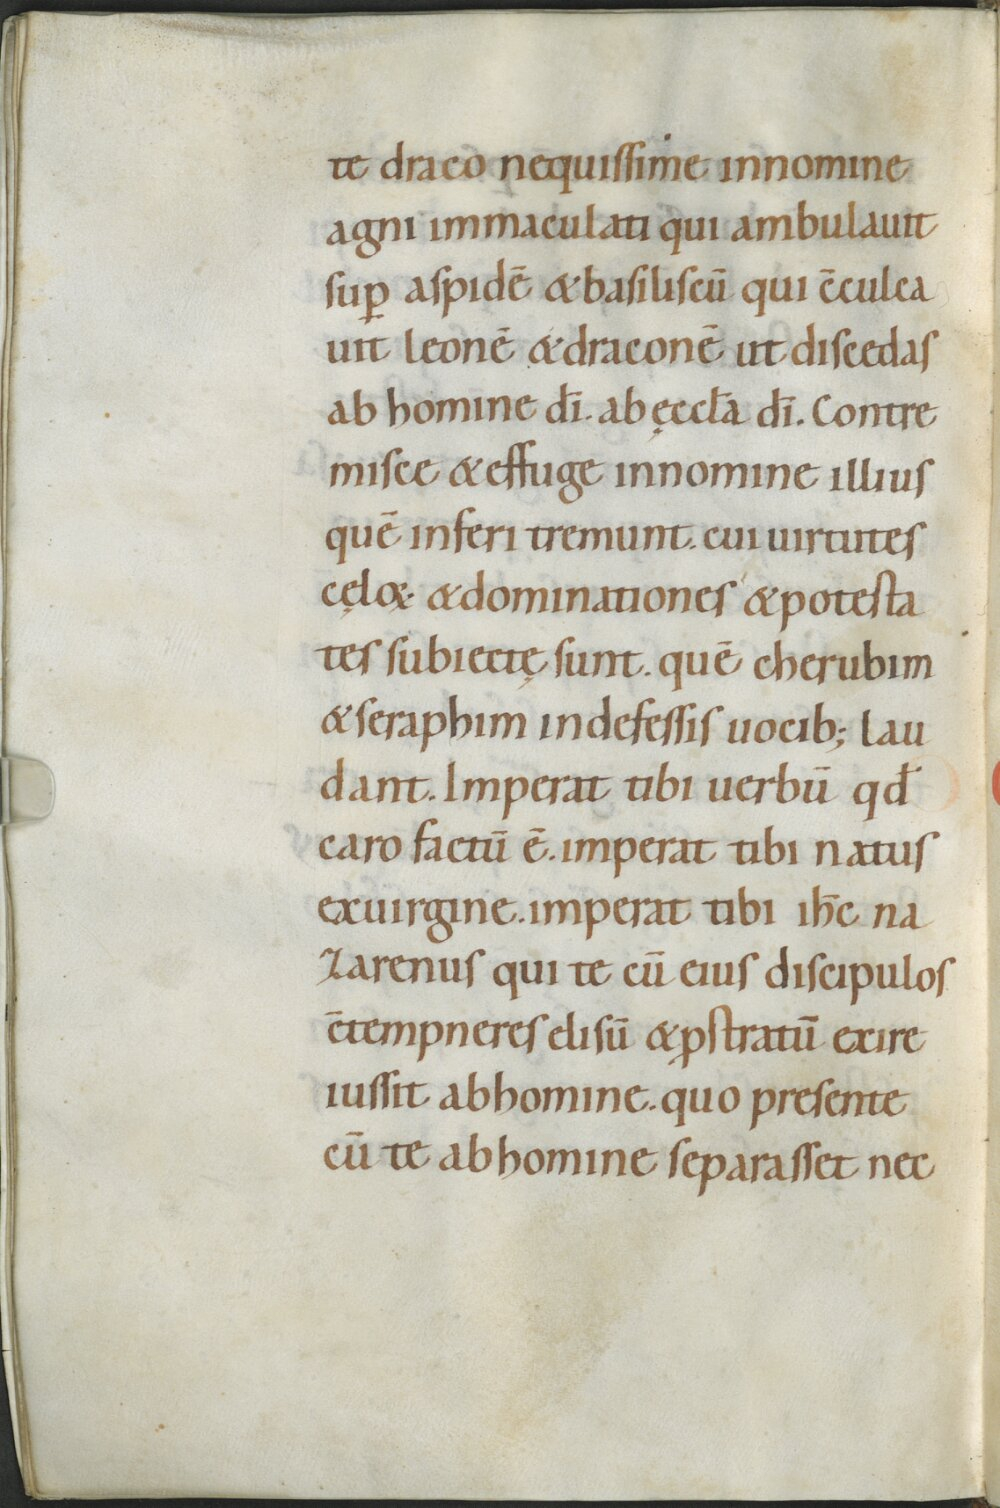 te draco nequissime innomine
agni immaculati qui ambulauit
suꝑ aspidē &basiliscū qui c̄culca
uit leonē &draconē ut discedas
ab homine dī. ab ęccła dī. Contre
misce &effuge innomine illius
quē inferi tremunt. cui uirtutes
cęloꝝ &dominationes &potesta
tes subiectę sunt. quē cherubim
&seraphim indefessis uocib; lau
dant. Imperat tibi uerbū qđ
caro factū ē. imperat tibi natus
exuirgine. imperat tibi ih̄c na
zarenus qui te cū eius discipulos
c̄tempneres elisū &ꝓstratū exire
iussit abhomine. quo presente
cū te abhomine separasset nec